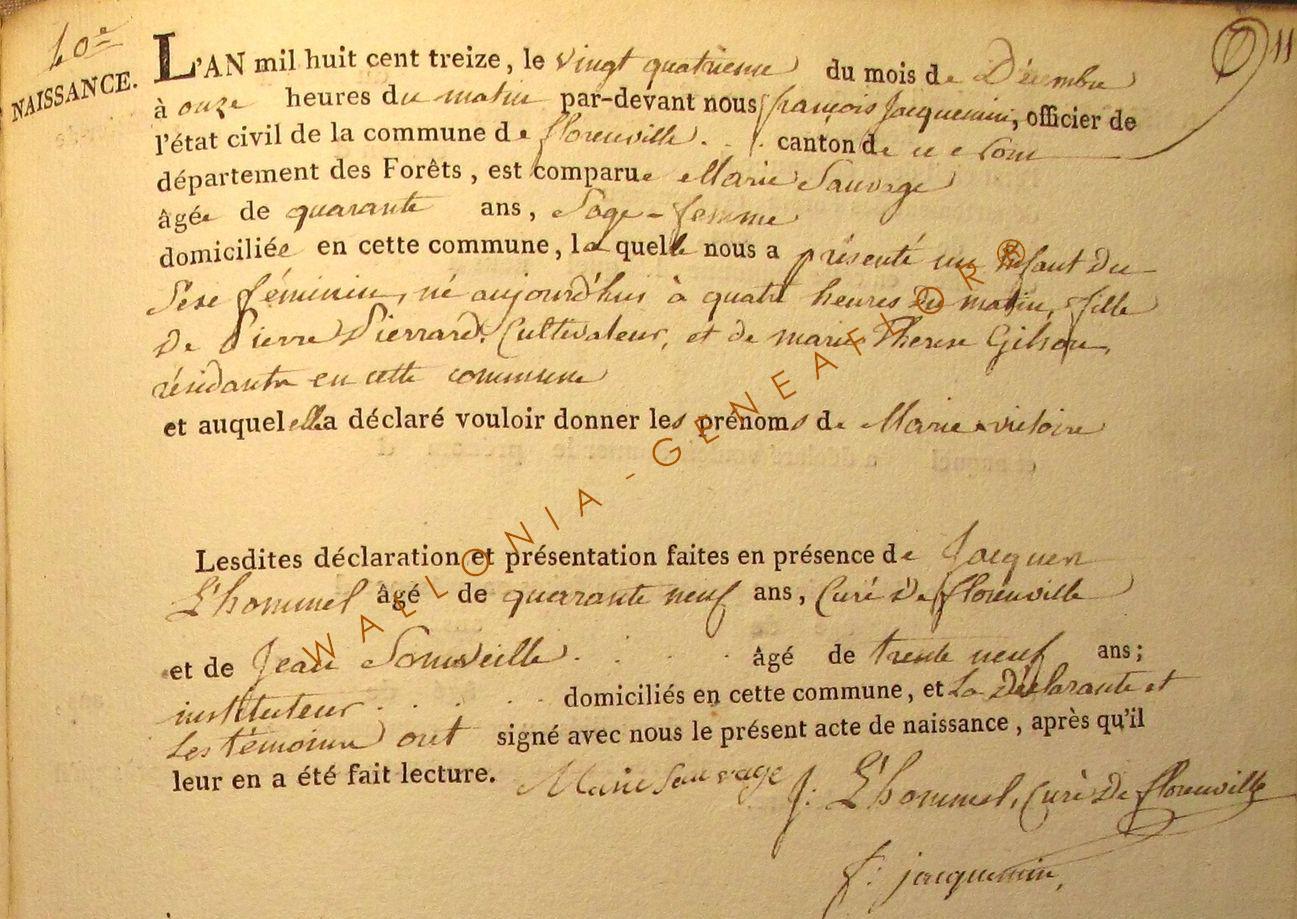 10e
NAISSANCE.
11
L'AN mil huit cent treize, le vingt quatrieme du mois de Décembre
à onze heures du matin par-devant nous françois Jacquemin, officier de
l'état civil de la commune de florenville . . canton de
département des Forêts, est comparue Marie Sauvage
âgée de quarante ans, Sage-femme
domiciliée en cette commune, laquelle nous a présenté un Enfant Du
Sexe féminin, né aujourd'hui à quatre heures Du matin, fille
De Pierre Pierrard, Cultivateur, et de marie Therese Gilson,
résidants en cette commune
et auquel elle a déclaré vouloir donner les prénoms de Marie victoire
Lesdites déclaration et présentation faites en présence de Jacques
L'hommel âgé de quarante neuf ans, Curé De florenville
et de Jean Somveille . . . . âgé de trente neuf ans;
instituteur . . . . . domiciliés en cette commune, et La Déclarante et
Les témoins ont signé avec nous le présent acte de naissance, après qu'il
leur en a été fait lecture. Marie Sauvage J: L'hommel, Curé De florenville
f: jacquemin,
WALLONIA-GENEAFLOR®